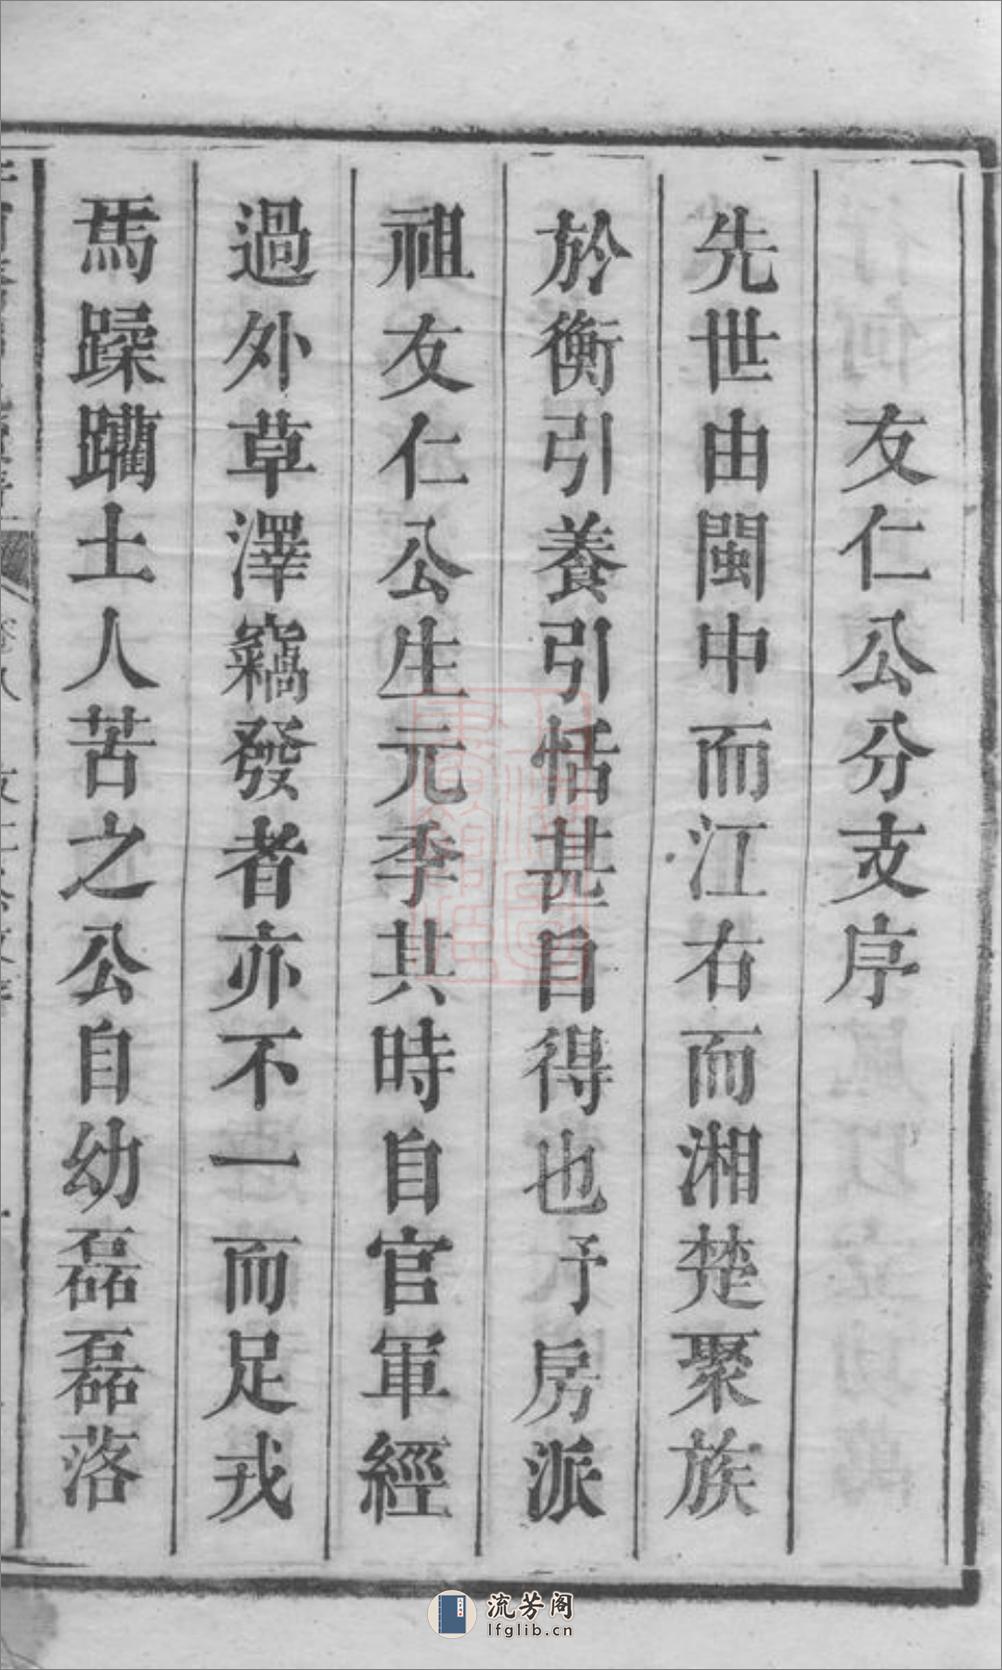 友仁公分支序
先世由閩中而江右而湘楚聚族
於衡引養引恬甚自得也予房派
祖友仁公生元季其時自官軍經
過外草澤竊發者亦不一而足戎
馬躁躪土人苦之公自幼磊磊落
流芳阁
lfglib.cn